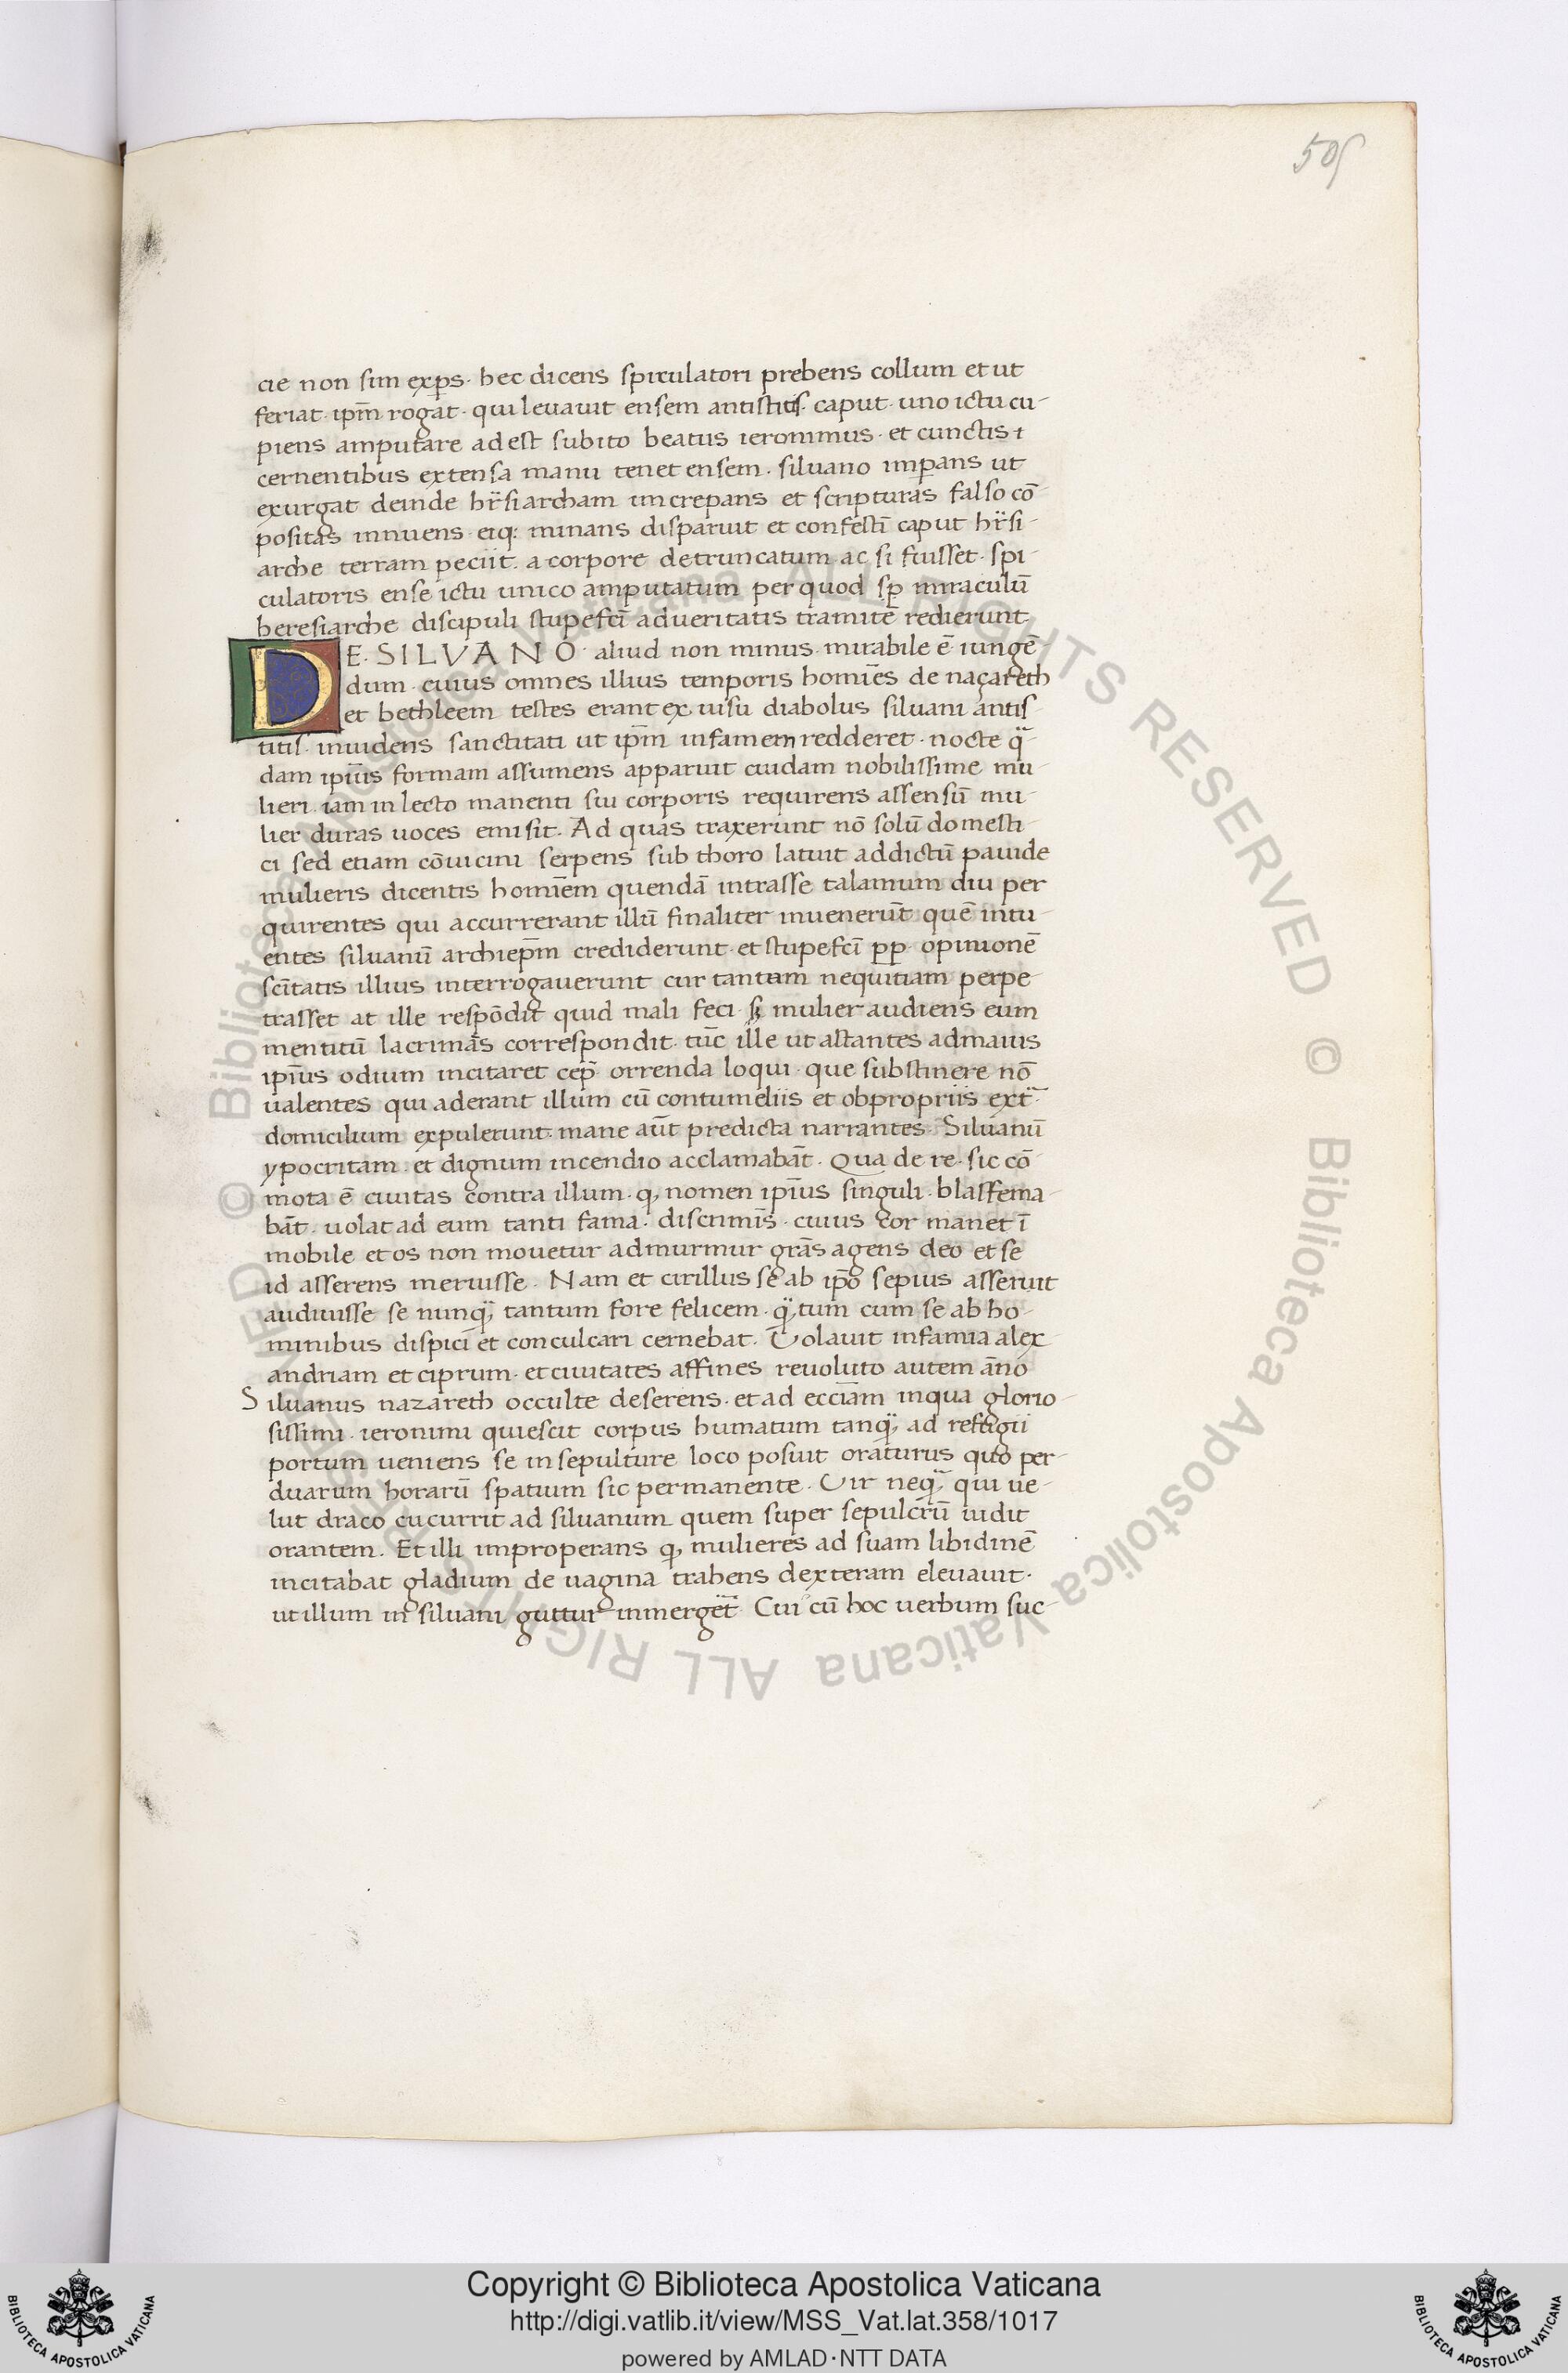 505
cie non sim exp̱s · hec dicens spiculatori prebens collum et ut
feriat · ip̄m rogat · qui levavit ensem antistitis · caput · uno ictu cu-
piens amputare adest subito beatus ieronimus · et cunctis ·
cernentibus extensa manu tenet ensem · siluano imp̱ans ut
exurgat deinde hr̄siarcham increpans et scripturas falso cō-
positas innuens · eiq: minans disparuit et confestī caput hr̄si-
arche terram peciit · a corpore detruncatum ac si fuisset · spi-
culatoris ense ictu unico amputatum per quod sp̱ miraculū
heresiarche discipuli stupefcī ad ueritatis tramitē redierunt
DE · SILVANO · aliud non minus · mirabile ē iungē-
dum · cuius omnes illius temporis homīes de naçareth
et bethleem testes erant ex uisu diabolus siluani antis-
titis · inuidens sanctitati ut ip̄m infamem redderet · nocte q̄-
dam ipīus formam assumens apparuit cuidam nobilissime mu-
lieri · iam in lecto manenti sui corporis requirens assensū mu-
lier duras uoces emisit · Ad quas traxerunt nō solū domesti-
ci sed etiam cōuicini serpens sub thoro latuit addictū pauide
mulieris dicentis homīem quendā intrasse talamum diu per
quirentes qui accurrerant illū finaliter inuenerūt quē intu-
entes siluanū archiep̄m crediderunt · et stupefcī pp̱ · opinionē
scītatis illius interrogauerunt cur tantam nequitiam perpe-
trasset at ille respōdit quid mali feci · sꝫ mulier audiens eum
mentitū lacrimās correspondit · tūc ille ut astantes ad maius
ipīus odium incitaret cep̄ orrenda loqui · que substinere nō
ualentes qui aderant illum cū contumeliis et obpropriis ext̄ ·
domicilium expulerunt · mane aūt predicta narrantes · Siluanū
ypocritam · et dignum incendio acclamabāt · Qua de re · sic cō-
mota ē ciuitas contra illum · q, nomen ipīus singuli · blasfema-
bāt · uolat ad eum tanti fama · discrimīs · cuius cor manet ī
mobile et os non mouetur ad murmur grās agens deo et se
id asserens meruisse · Nam et cirillus se ab ip̄o sepius asseruit
audiuisse se nunq̄, tantum fore felicem · q̄,tum cum se ab ho-
minibus dispici et conculcari cernebat · Uolauit infamia alex-
andriam et ciprum · et ciuitates affines reuoluto autem āno
Siluanus nazareth occulte deserens · et ad eccīam in qua glorio-
sissimi · ieronimi quiescit corpus humatum tanq̄, ad reffigii
portum ueniens se in sepulture loco posuit oraturus quo per-
duarum horarū spatium sic permanente · Uir neq̄, qui ue-
lut draco cucurrit ad siluanum quem super sepulcrū uidit
orantem · Et illi improperans q, mulieres ad suam libidinē
incitabat gladium de uagina trahens dexteram eleuauit ·
ut illum in siluani guttur inmerget̄ · Cui cū hoc uerbum suc-
© Biblioteca Apostolica Vaticana ALL RIGHTS RESERVED © Biblioteca Apostolica Vaticana ALL RIGHTS RESERVED
Copyright © Biblioteca Apostolica Vaticana
http://digi.vatlib.it/view/MSS_Vat.lat.358/1017
powered by AMLAD·NTT DATA
BIBLIOTECA APOSTOLICA VATICANA
BIBLIOTECA APOSTOLICA VATICANA